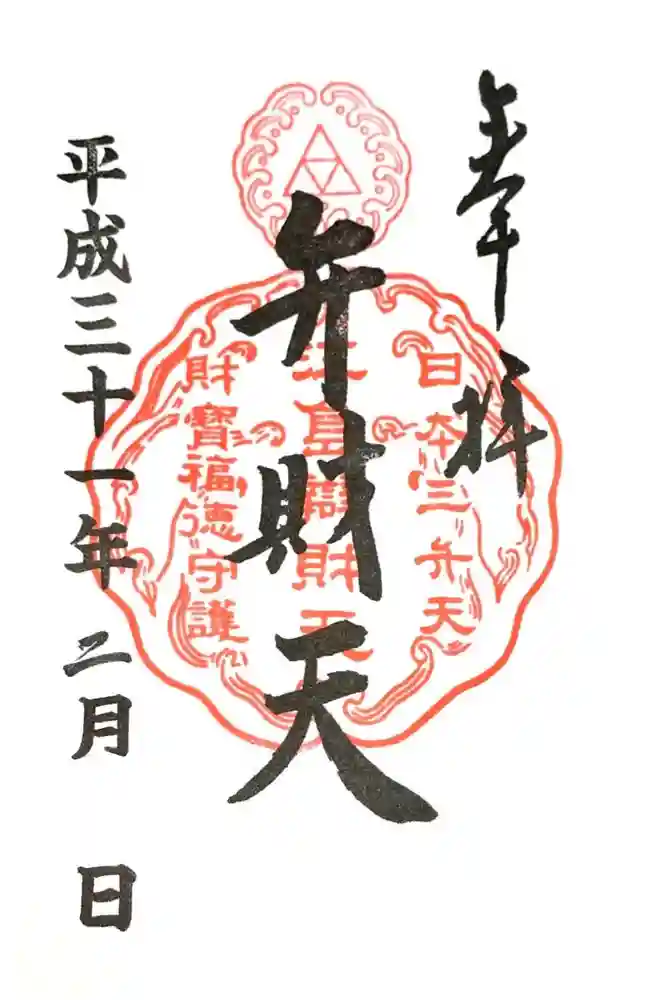 奉拝
日本三弁天
江島辯財天
弁財天
財寶福徳守護
平成三十一年二月 日